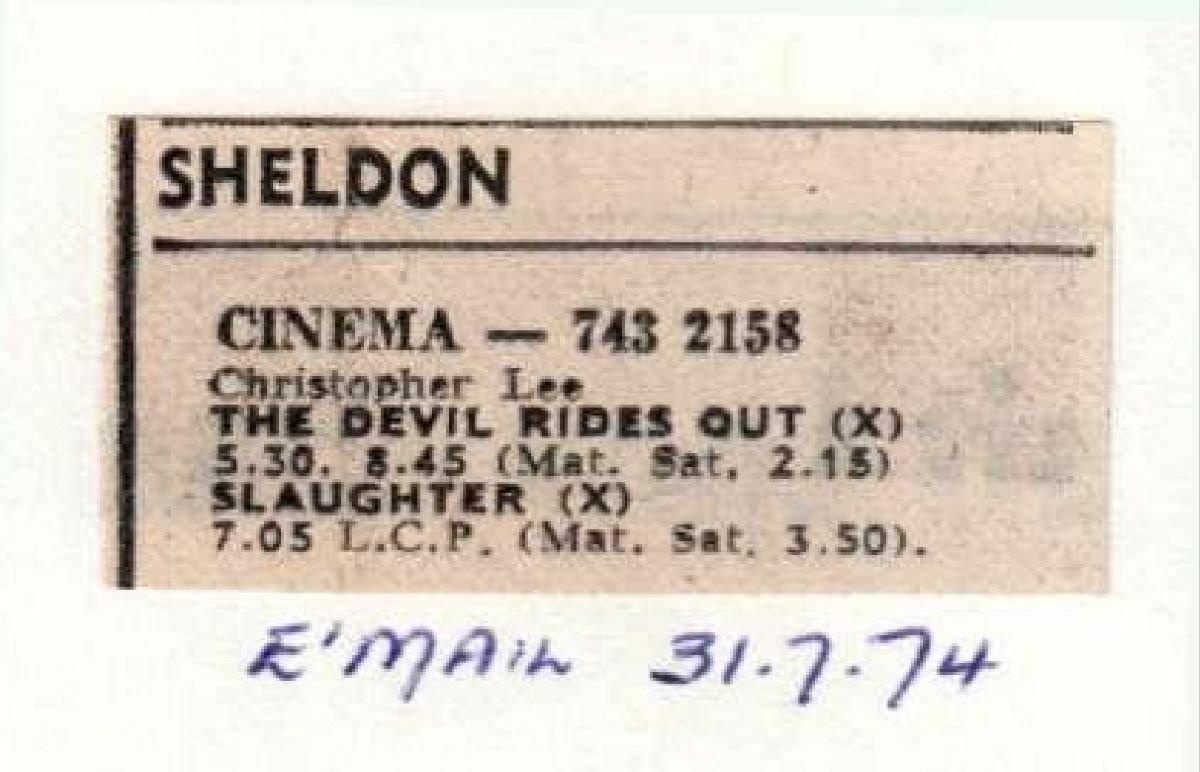 SHELDON
CINEMA — 743 2158
Christopher Lee
THE DEVIL RIDES OUT (X)
5.30. 8.45 (Mat. Sat. 2.15)
SLAUGHTER (X)
7.05 L.C.P. (Mat. Sat. 3.50).
E'MAIL 31.7.74